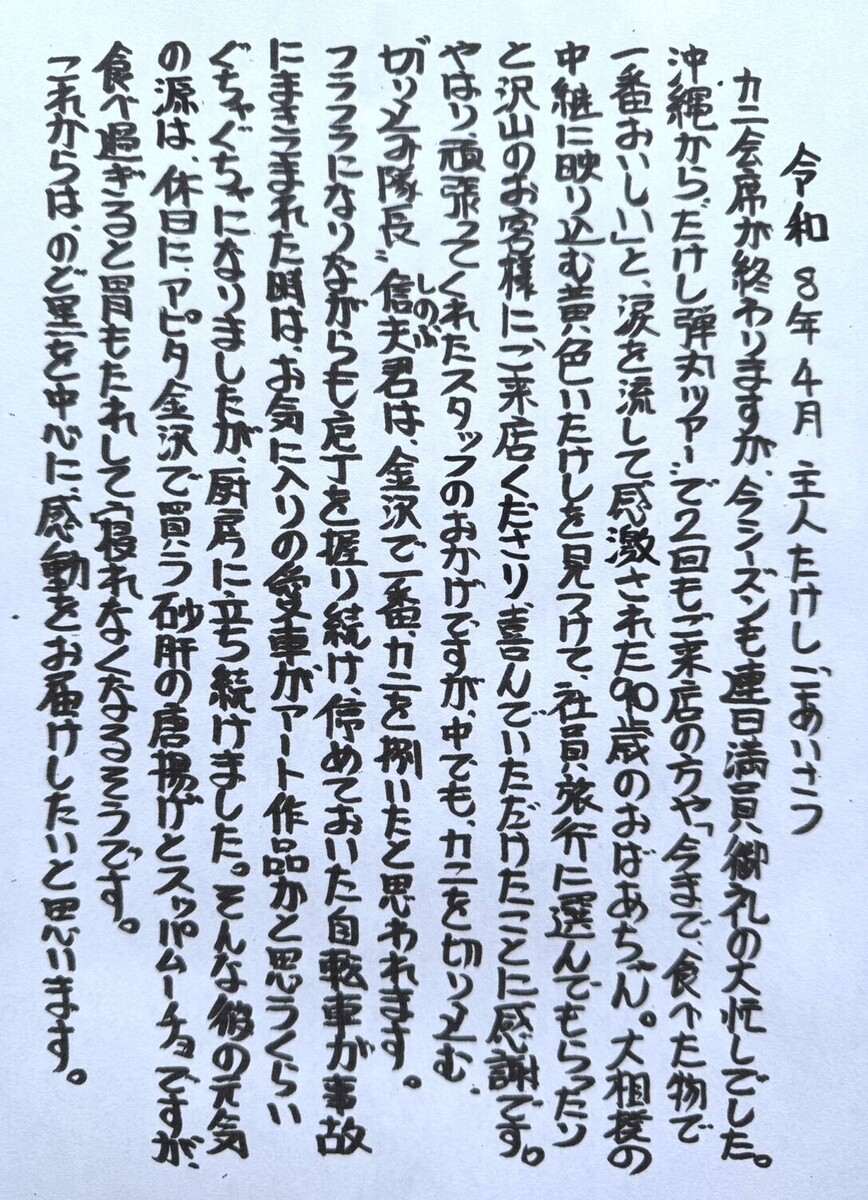 令和8年4月 主人たけしごあいさつ
カニ会席が終わりますが、今シーズンも連日満員御礼の大忙しでした。
沖縄から"たけし弾丸ツアー"で2回もご来店の方や「今まで、食べた物で
一番おいしい」と、涙を流して感激された90歳のおばあちゃん。大相撲の
中継に映り込む黄色いたけしを見つけて、社員旅行に選んでもらったり
と沢山のお客様にご来店くださり、喜んでいただけたことに感謝です。
やはり、頑張ってくれたスタッフのおかげですが、中でも、カニを切り込む、
切り込み隊長"信夫君は、金沢で一番、カニを捌いたと思われます。
しのぶ
フラフラになりながらも包丁を握り続け、停めておいた自転車が事故
にまきこまれた時は、お気に入りの愛車がアート作品かと思うくらい
ぐちゃぐちゃになりましたが、厨房に立ち続けました。そんな彼の元気
の源は、休日に、アピタ金沢で買う砂肝の唐揚げとスッパムーチョですが、
食べ過ぎると胃もたれして、寝れなくなるそうです。
これからは、のど黒を中心に、感動をお届けしたいと思います。